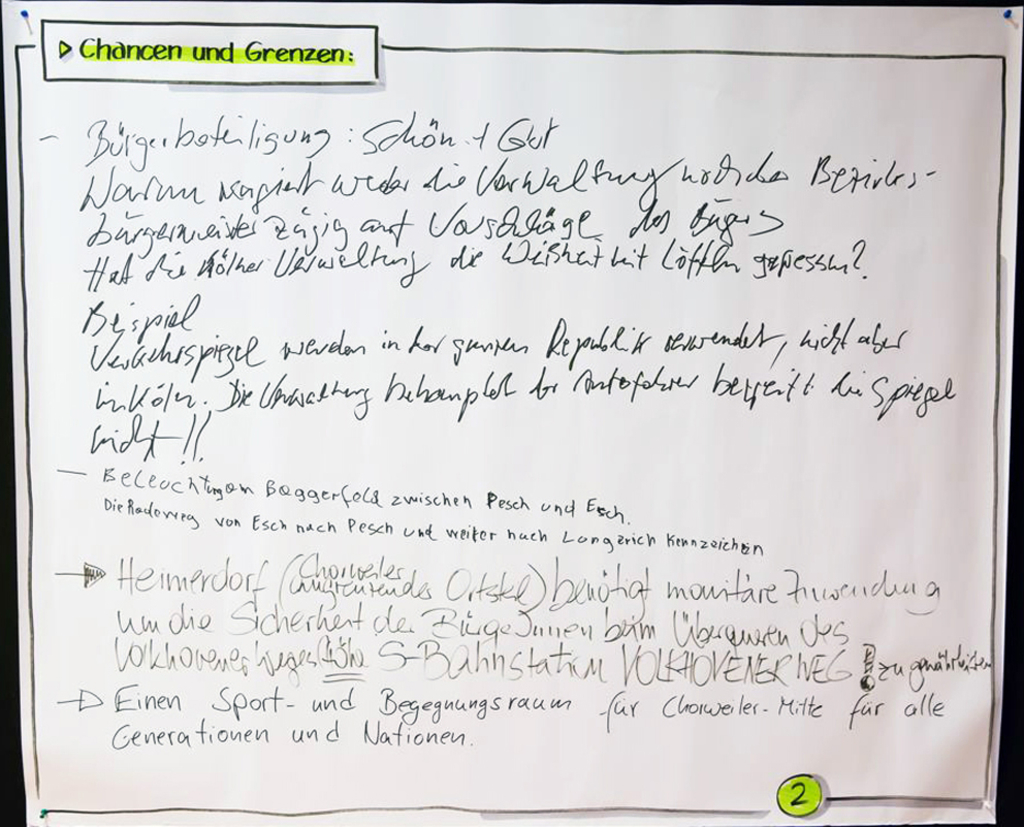 Chancen und Grenzen:
- Bürgerbeteiligung: Schön + Gut
Warum reagiert weder die Verwaltung noch der Bezirks-
bürgermeister zügig auf Vorschläge des Bürgers
Hat die Kölner Verwaltung die Weisheit mit Löffeln gefressen?
Beispiel
Verkehrsspiegel werden in der ganzen Republik verwendet, nicht aber
in Köln. Die Verwaltung behauptet der Autofahrer begreift die Spiegel
nicht!!
- Beleuchtung am Baggerfeld zwischen Pesch und Esch.
Die Radeweg von Esch nach Pesch und weiter nach Longerich Kennzeichen
Heimerdorf (Chorweiler
angrenzendes Ortsteil) benötigt monitäre Zuwendung
um die Sicherheit der BürgerInnen beim Überqueren des
Volkhovener Weges Höhe S-Bahnstation VOLKHOVENER WEG! zu gewährleisten
Einen Sport- und Begegnungsraum für Chorweiler-Mitte für alle
Generationen und Nationen.
2